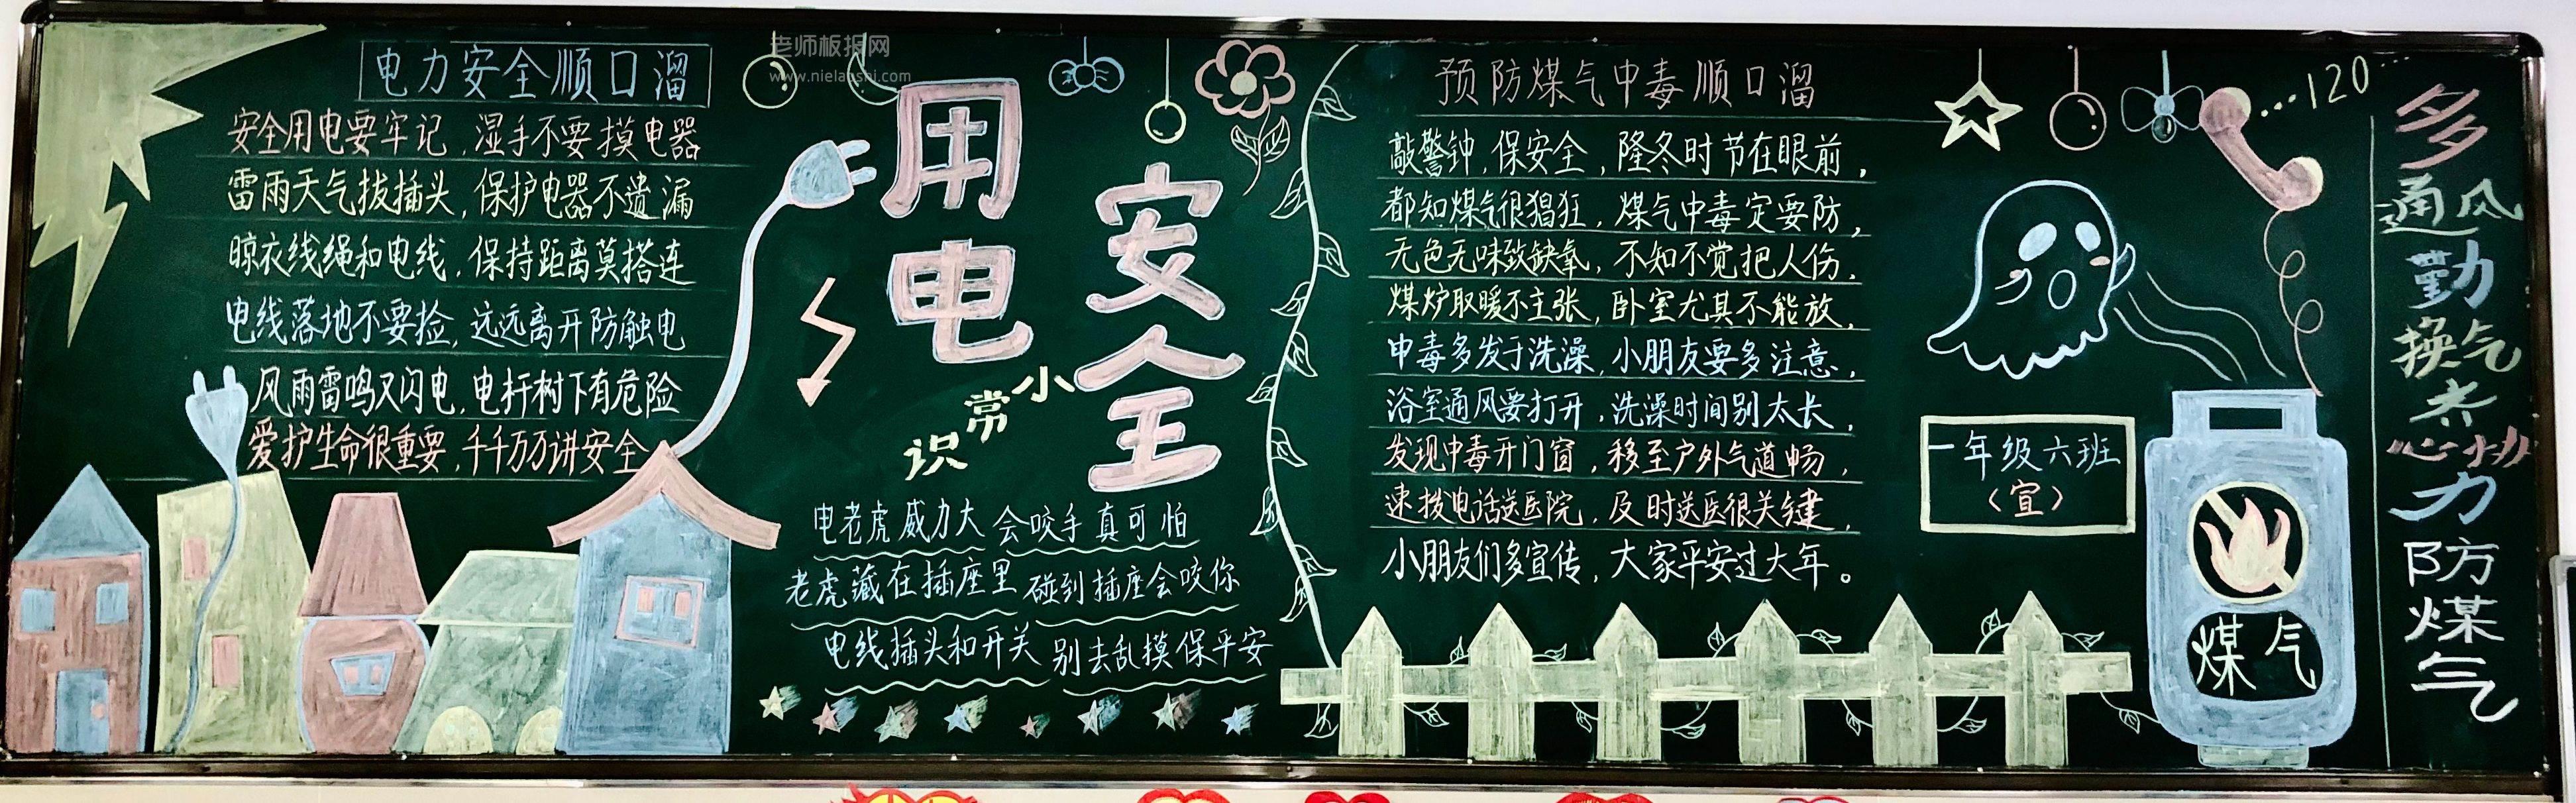 老师板报网
www.nielaoshi.com
电力安全顺口溜
安全用电要牢记，湿手不要摸电器
雷雨天气拔插头，保护电器不遗漏
晾衣线绳和电线，保持距离莫搭连
电线落地不要捡，远远离开防触电
风雨雷鸣又闪电，电杆树下有危险
爱护生命很重要，千千万万讲安全
用电
安全
小常识
电老虎威力大 会咬手真可怕
老虎藏在插座里 碰到插座会咬你
电线插头和开关 别去乱摸保平安
预防煤气中毒顺口溜
敲警钟，保安全，隆冬时节在眼前，
都知煤气很猖狂，煤气中毒定要防，
无色无味致缺氧，不知不觉把人伤，
煤炉取暖不主张，卧室尤其不能放，
中毒多发于洗澡，小朋友要多注意，
浴室通风要打开，洗澡时间别太长，
发现中毒开门窗，移至户外气道畅，
速拨电话送医院，及时送医很关键，
小朋友们多宣传，大家平安过大年。
120
一年级六班
（宣）
煤气
多通风勤换气齐心协力防煤气